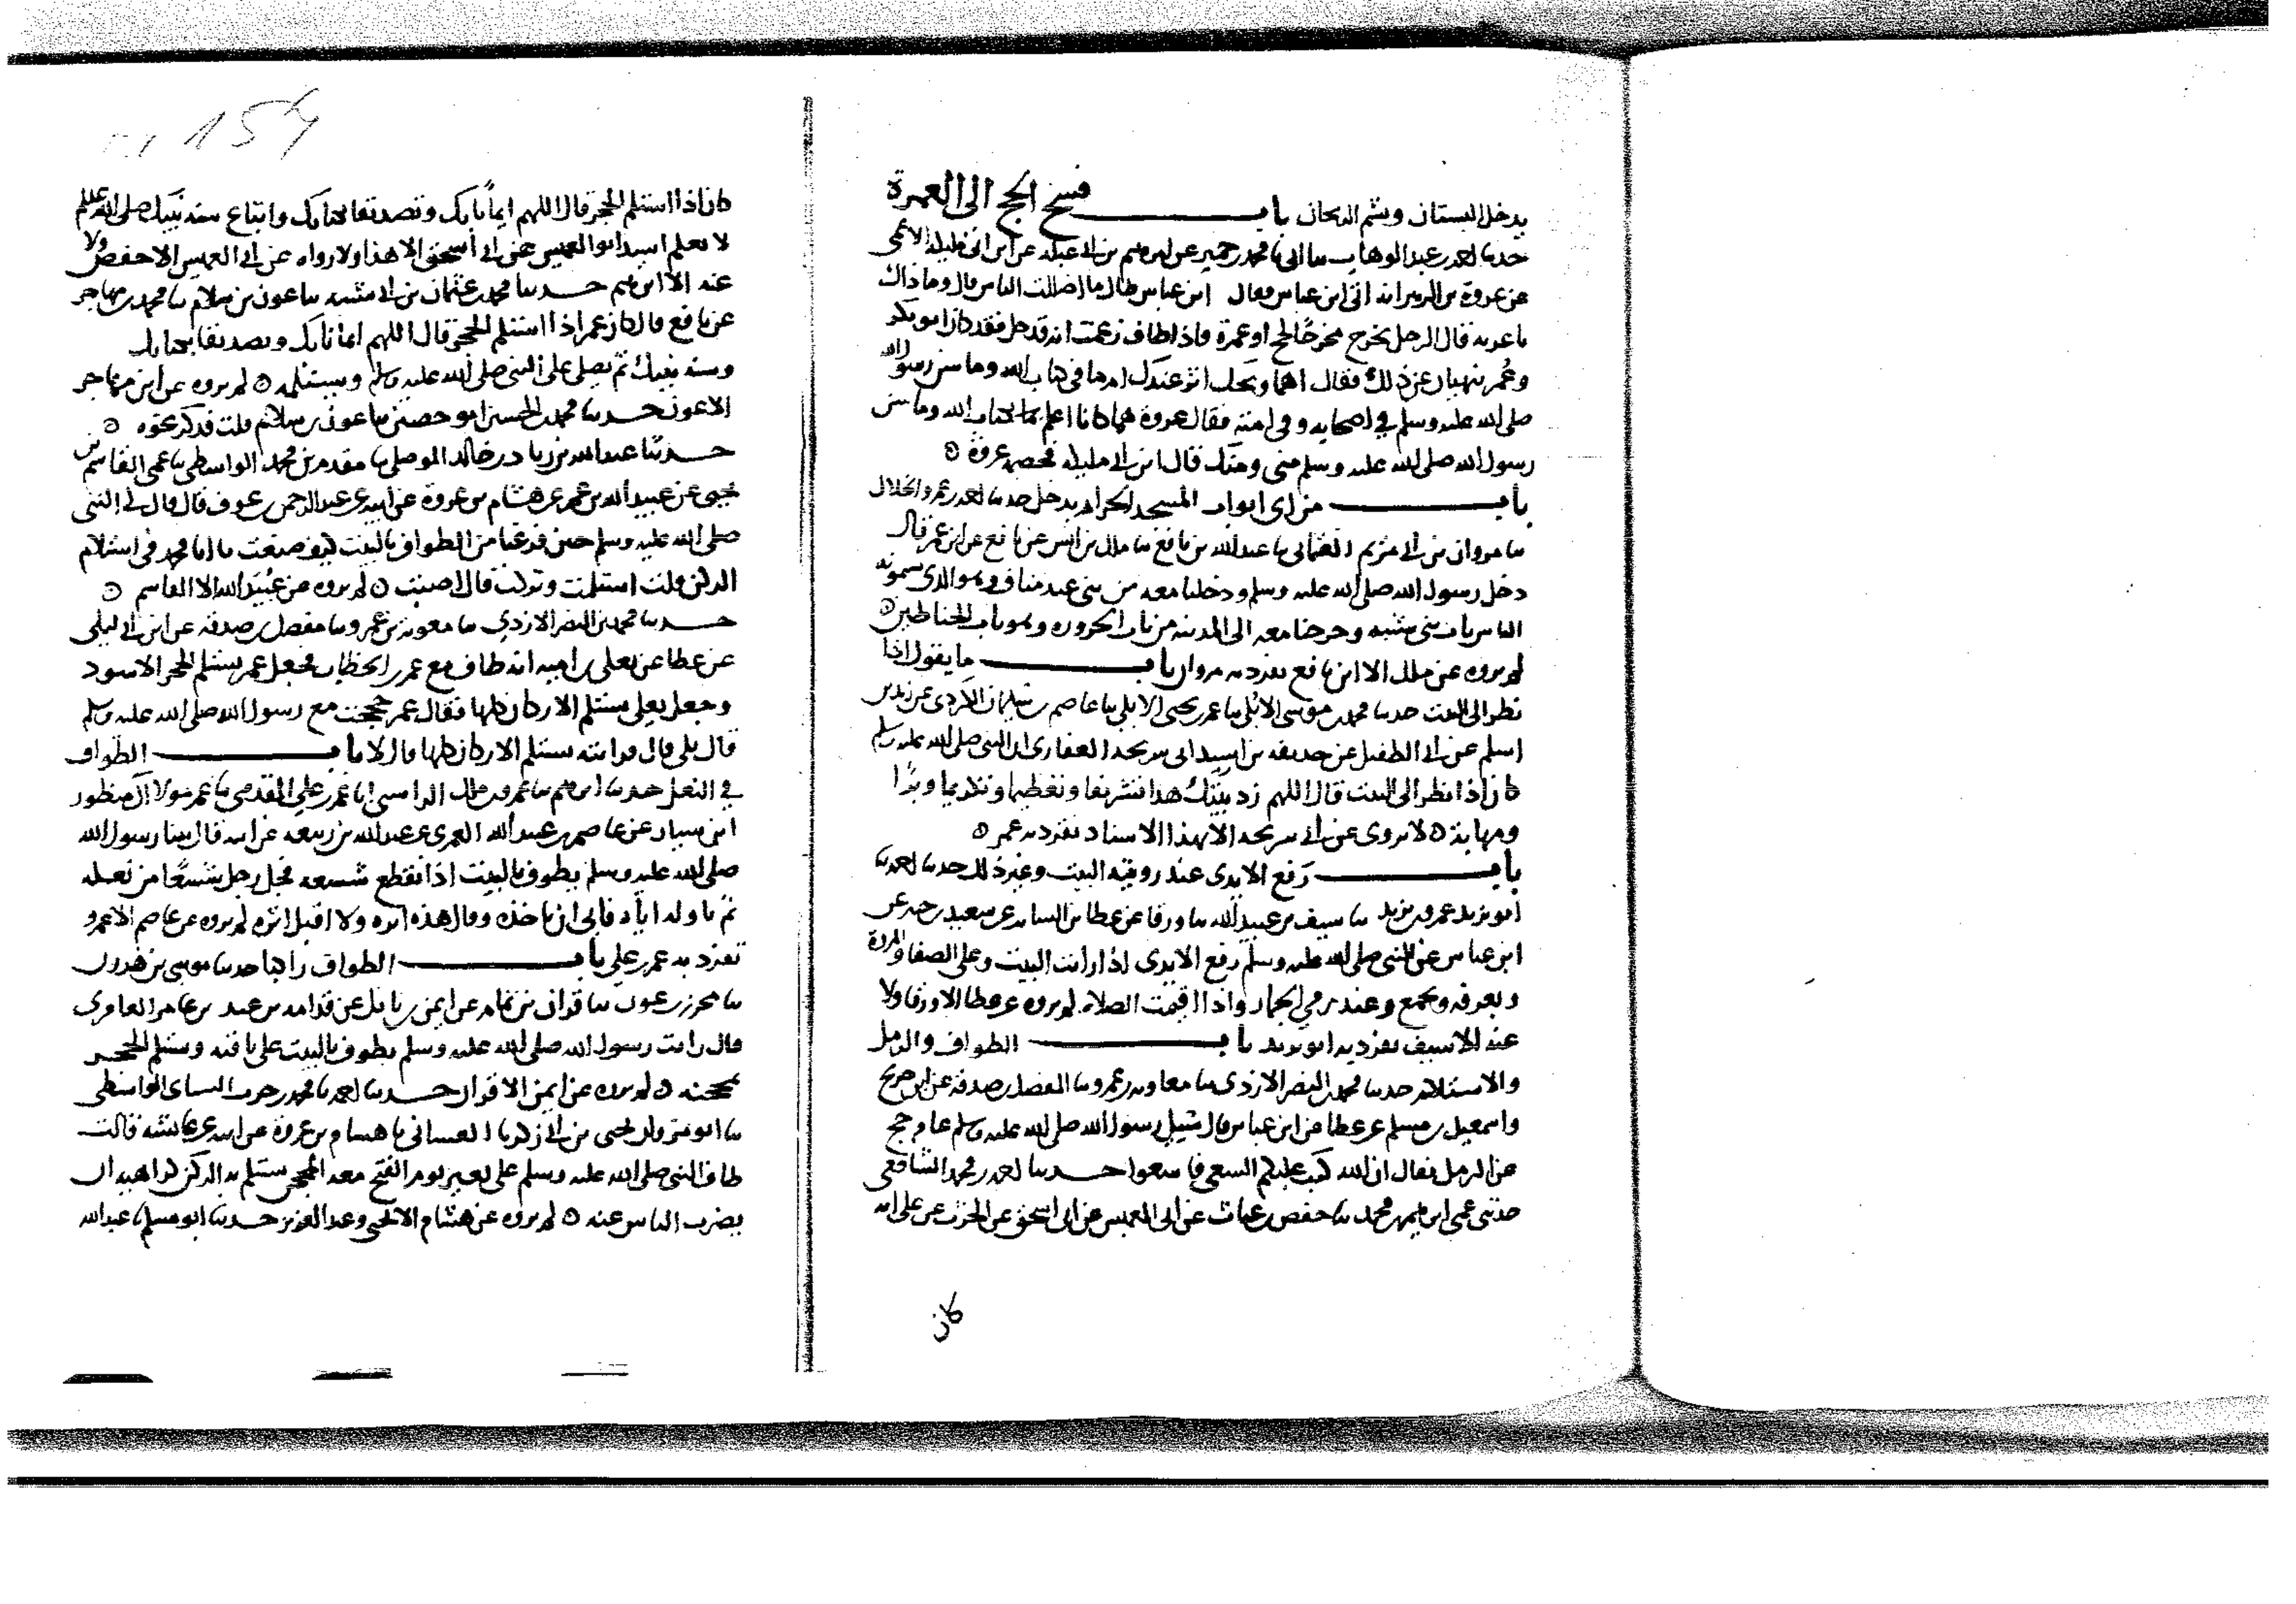 يدخل البستان ويشم الريحان باب فسخ الحج الى العمرة
حدثنا احمد بن عبد الوهاب ثنا ابي ثنا محمد بن حمير عن ابرهيم بن ابي عبلة عن ابن ابي مليكة الاعمى
عن عروة بن الزبير انه اتى ابن عباس فقال ابن عباس طال ما اضللت الناس قال وما ذاك
يا عرية قال الرجل يخرج محرما لحج او عمرة فاذا طاف زعمت انه قد حل فقد كان ابو بكر
وعمر ينهيان عن ذلك فقال اهما ويحك اثر عندك ام ما في كتاب الله وما سن رسول الله
صلى الله عليه وسلم في اصحابه وفي امته فقال عروة هما كانا اعلم بكتاب الله وما سن
رسول الله صلى الله عليه وسلم مني ومنك قال ابن ابي مليكة فخصمه عروة
باب من اي ابواب المسجد الحرام يدخل حدثنا احمد بن عمرو الخلال
ثنا مروان بن ابي مريم العثماني ثنا عبد الله بن نافع ثنا ملك بن انس عن نافع عن ابن عمر قال
دخل رسول الله صلى الله عليه وسلم ودخلنا معه من بني عبد مناف وهو الذي يسمونه
الناس باب بني شيبه وخرجنا معه الى المدينة من باب الحزورة وهو باب الحناطين
لم يروه عن ملك الا ابن نافع تفرد به مروان باب ما يقول اذا
نظر الى البيت حدثنا محمد بن موسى الابلي ثنا عمر بن يحيى الابلي ثنا عاصم بن سليمان الكردي عن زيد بن
اسلم عن ابي الطفيل عن حذيفة بن اسيد ابي سريحة الغفاري ان النبي صلى الله عليه وسلم
كان اذا نظر الى البيت قال اللهم زد بيتك هذا تشريفا وتعظيما وتكريما وبرا
ومهابة لا يروى عن ابي سريحة الا بهذا الاسناد تفرد به عمر
باب رفع الايدي عند روية البيت وغير ذلك حدثنا احمد ثنا
ابو بريد عمرو بن يزيد ثنا سيف بن عبيد الله ثنا ورقا عن عطا بن السايب عن سعيد بن جبير عن
ابن عباس عن النبي صلى الله عليه وسلم رفع الايدي اذا رايت البيت وعلى الصفا والمروة
وبعرفة وبجمع وعند رمي الجمار واذا اقيمت الصلاة لم يروه عن عطا الا ورقا ولا
عنه الا سيف تفرد به ابو بريد باب الطواف والرمل
والاستلام حدثنا محمد بن النضر الازدي ثنا معاوية بن عمرو ثنا المفضل بن صدقة عن ابن جريج
واسمعيل بن مسلم عن عطا عن ابن عباس قال سئل رسول الله صلى الله عليه وسلم عام حج
عن الرمل فقال ان الله كتب عليكم السعي فاسعوا حدثنا احمد بن محمد الشافعي
حدثني عمي ابرهيم بن محمد ثنا حفص بن غياث عن ابي العميس عن ابي اسحق عن الحرث عن علي انه
كان
كان اذا استلم الحجر قال اللهم ايمانا بك وتصديقا بكتابك واتباع سنة نبيك صلى الله عليه وسلم
لا نعلم اسند ابو العميس عن ابي اسحق الا هذا ولا رواه عن ابي العميس الا حفص ولا
عنه الا ابرهيم حدثنا محمد بن عثمان بن ابي شيبه ثنا عون بن سلام ثنا محمد بن مهاجر
عن نافع قال كان ابن عمر اذا استلم الحجر قال اللهم ايمانا بك وتصديقا بكتابك
وسنة نبيك ثم يصلي على النبي صلى الله عليه وسلم ويستلمه لم يروه عن ابن مهاجر
الا عون حدثنا محمد بن الحسين ابو حصين ثنا عون بن سلام قلت فذكر نحوه
حدثنا عبد الله بن زياد بن خالد الموصلي ثنا مقدم بن محمد الواسطي ثنا عمي القاسم بن
يحيى عن عبيد الله بن عمر عن هشام بن عروة عن ابيه عن عبد الرحمن بن عوف قال قال لي النبي
صلى الله عليه وسلم حين فرغنا من الطواف بالبيت كيف صنعت يا ابا محمد في استلام
الركن قلت استلمت وتركت قال اصبت لم يروه عن عبيد الله الا القاسم
حدثنا محمد بن النضر الازدي ثنا معوية بن عمرو ثنا مفضل بن صدقة عن ابن ابي ليلى
عن عطا عن يعلى بن امية انه طاف مع عمر بن الخطاب فجعل عمر يستلم الحجر الاسود
وجعل يعلى يستلم الاركان كلها فقال عمر حججت مع رسول الله صلى الله عليه وسلم
قال بلى قال فرايته يستلم الاركان كلها قال لا باب الطواف
في النعل حدثنا ابرهيم ثنا عمرو بن ملك الراسبي ثنا عمر بن علي المقدمي ثنا عمر مولا آل منظور
ابن سيار عن عاصم بن عبيد الله العمري عن عبد الله بن ربيعه عن ابيه قال بينا رسول الله
صلى الله عليه وسلم يطوف بالبيت اذ انقطع شسعه فحل رجل شسعا من نعله
ثم ناوله اياه فابى ان ياخذه وقال هذه اثرة ولا اقبل اثرة لم يروه عن عاصم الا عمر و
تفرد به عمر بن علي باب الطواف راكبا حدثنا موسى بن هرون
ثنا محرز بن عون ثنا قران بن تمام عن ايمن بن نابل عن قدامة بن عبد الله بن عامر العامري
قال رايت رسول الله صلى الله عليه وسلم يطوف بالبيت على ناقته ويستلم الحجر
بمحجنه لم يروه عن ايمن الا قران حدثنا احمد ثنا محمد بن حرب النسائي الواسطي
ثنا ابو مروان يحيى بن ابي زكريا الغساني ثنا هشام بن عروة عن ابيه عن عائشة قالت
طاف النبي صلى الله عليه وسلم على بعير يوم الفتح معه المحجن يستلم به الركن كراهية ان
يضرب الناس عنه لم يروه عن هشام الا يحيى وعبد العزيز حدثنا ابو مسلم ثنا عبد الله